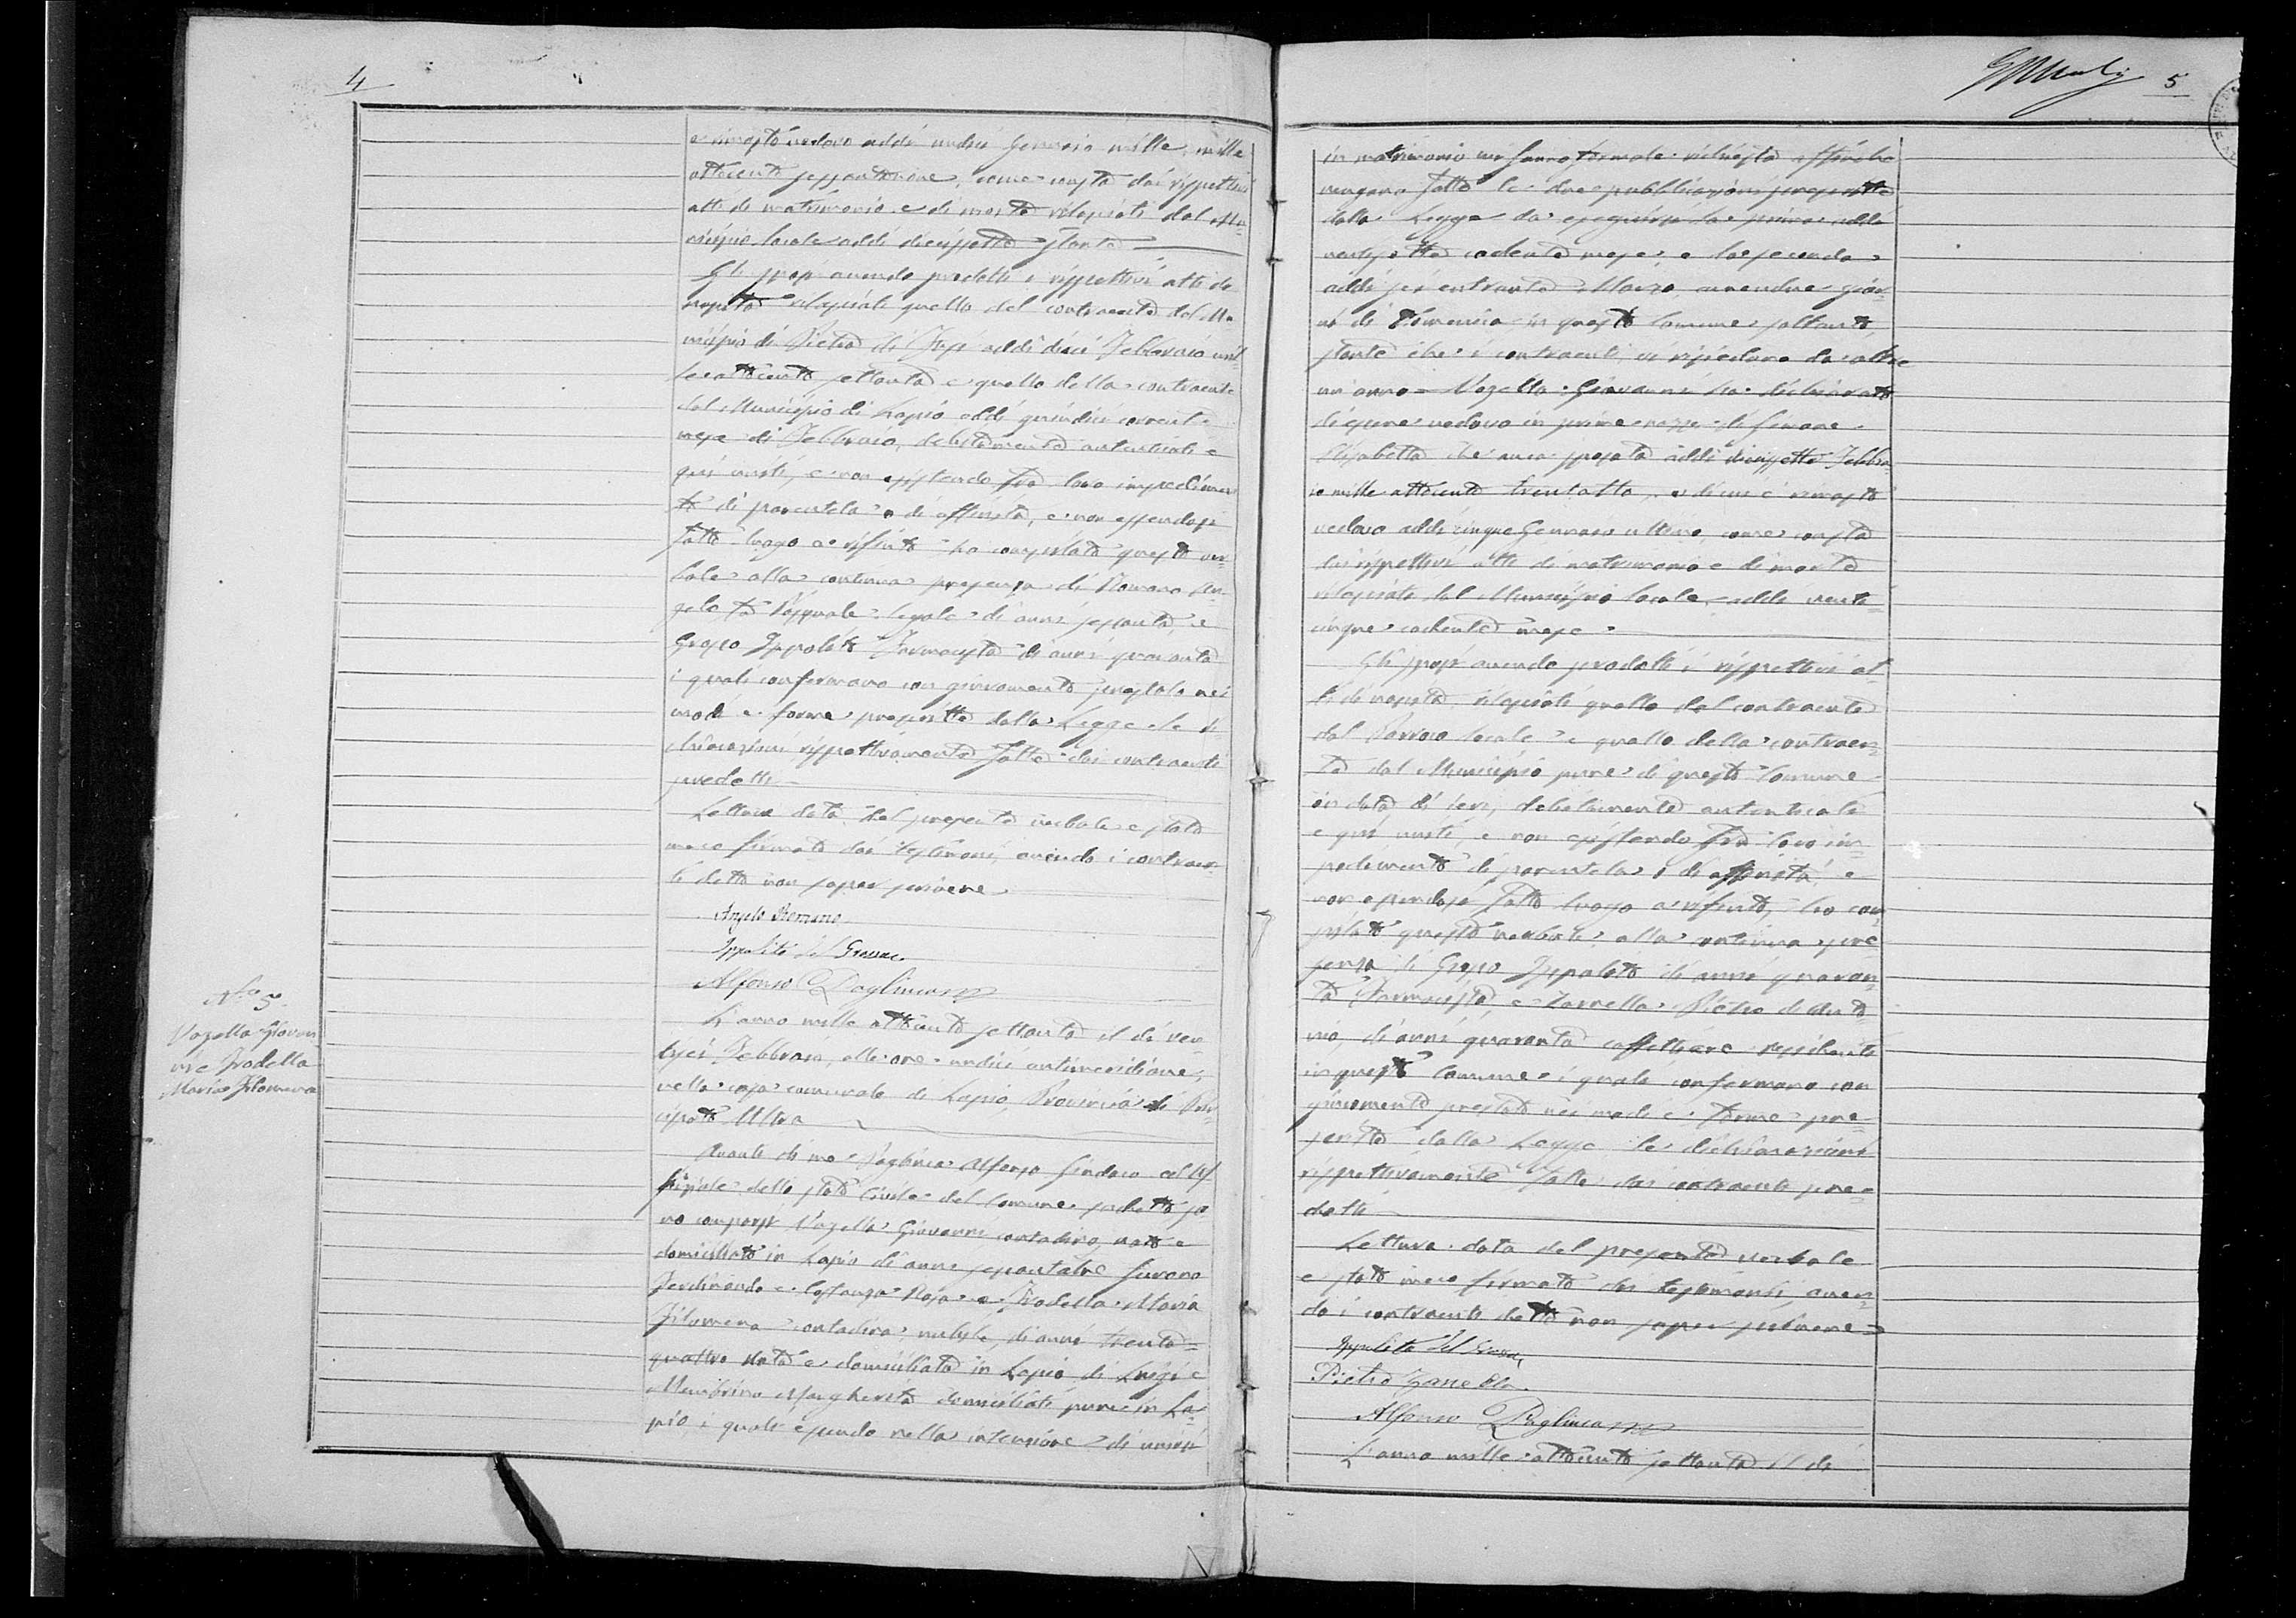 4
è rimasto vedovo addì undici Gennaio mille, mille
ottocento sessantanove, come costa dai rispettivi
atti di matrimonio e di morte rilasciati dal Mu=
nicipio locale addì diecissette stante
Gli sposi avendo prodotti i rispettivi atti di
nascita rilasciati quello del contraente dal Mu
nicipio di Pietra de Fusi addì dieci Febbraio mil
leottocento settanta e quello della contraente
dal Municipio di Lapio addì quindici corrente
mese di Febbraio, debitamente autenticati e
quì uniti, e non esistendo fra loro impedimen
to di parentela o di affinità, e non essendosi
fatto luogo a rifiuto ho compilato questo ver
bale alla continua presenza di Romano An=
gelo fu Pasquale legale di anni sessanta, e
Grosso Ippolito Farmacista di anni quaranta
i quali confermano con giuramento prestato nei
modi e forme prescritte dalla Legge le di
chiarazioni rispettivamente fatte dai contraenti
predetti
Lettura data del presente verbale è stato
meco firmato dai testimoni, avendo i contraen
ti detto non saper scrivere
Angelo Romano
Ippolito del Grosso
Alfonso Pagliuca
N.o 5
Vozella Giovan
ni e Frodella
Maria Filomena
L'anno mille ottocento settanta il dì ven
tisei Febbraio, alle ore undici antimeridiane,
nella casa comunale di Lapio, Provincia di Prin
cipato Ultra
Avanti di me Pagliuca Alfonso Sindaco ed Uf
ficiale dello stato Civile del Comune suddetto so
no comparsi Vozella Giovanni contadino, nato e
domiciliato in Lapio di anni sessantatre furono
Ferdinando e Costanza Rosa e Frodella Maria
Filomena contadina nubile, di anni trenta=
quattro nata e domiciliata in Lapio di Luigi e
Margherita domiciliati pure in La=
pio, i quali essendo nella intenzione di unirsi
5
in matrimonio mi fanno formale richiesta affinchè
vengano fatte le due pubblicazioni prescritte
dalla Legge da eseguirsi la prima addì
ventisette cadente mese, e la seconda
addì sei entrante Marzo, amendue gior=
ni di Domenica in questo Comune soltanto
stante che i contraenti vi risiedono da oltre
un anno = Vozella Giovanni ha dichiarato
di essere vedovo in prime nozze di
Elisabetta che avea sposata addì diecissette Febbra=
io mille ottocento trentotto, e di cui è rimasto
vedovo addì cinque Gennaio ultimo, come costa
dai rispettivi atti di matrimonio e di morte
rilasciati dal Municipio locale addì venti=
cinque cadente mese
Gli sposi avendo prodotti i rispettivi at
ti di nascita rilasciati quello del contraente
dal Parroco locale e quello della contraen=
te dal Municipio pure di questo Comune
in data di ieri, debitamente autenticati
e quì uniti, e non esistendo fra loro im=
pedimento di parentela o di affinità, e
non essendosi fatto luogo a rifiuto, ho com=
pilato questo verbale alla continua pre
senza di Grosso Ippolito di anni quaran=
ta Farmacista, e Zarrella Pietro
di anni quaranta caffettiere residenti
in questo Comune i quali confermano con
giuramento prestato nei modi e forme pre=
scritte dalla Legge le dichiarazioni
rispettivamente fatte dai contraenti pre=
detti
Lettura data del presente verbale
è stato meco firmato dai testimonii, aven=
do i contraenti detto non saper scrivere =
Ippolito del Grosso
Pietro Zarrella
Alfonso Pagliuca
L'anno mille ottocento settanta il dì